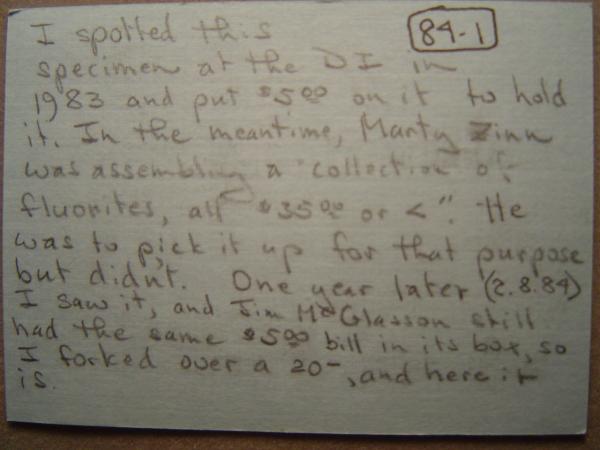 I spotted this 84-1
specimen at the DI in
1983 and put $5.00 on it to hold
it. In the meantime, Marty Zinn
was assembling a "collection of
fluorites, all $35.00 or <". He
was to pick it up for that purpose
but didn't. One year later (2.8.84)
I saw it, and Jim McGlasson still
had the same $5.00 bill in its box, so
I forked over a 20-, and here it
is.